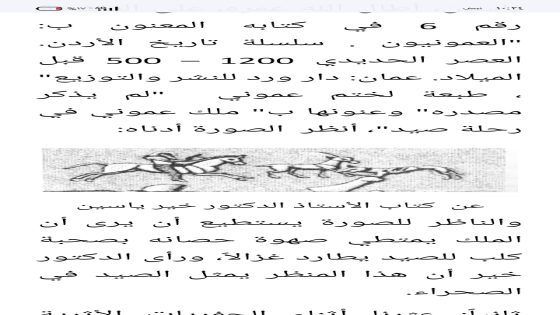 رقم 6 في كتابه المعنون ب:
"العمونيون . سلسلة تاريخ الأردن.
العصر الحديدي 1200 – 500 قبل
الميلاد. عمان: دار ورد للنشر والتوزيع"
، طبعة لختم عموني "لم يذكر
مصدره" وعنونها ب" ملك عموني في
رحلة صيد"، أنظر الصورة أدناه:
عن كتاب الأستاذ الدكتور خير ياسين
والناظر للصورة يستطيع أن يرى أن
الملك يمتطي صهوة حصانه بصحبة
كلب للصيد يطارد غزالاً، ورأى الدكتور
خير أن هذا المنظر يمثل الصيد في
الصحراء.